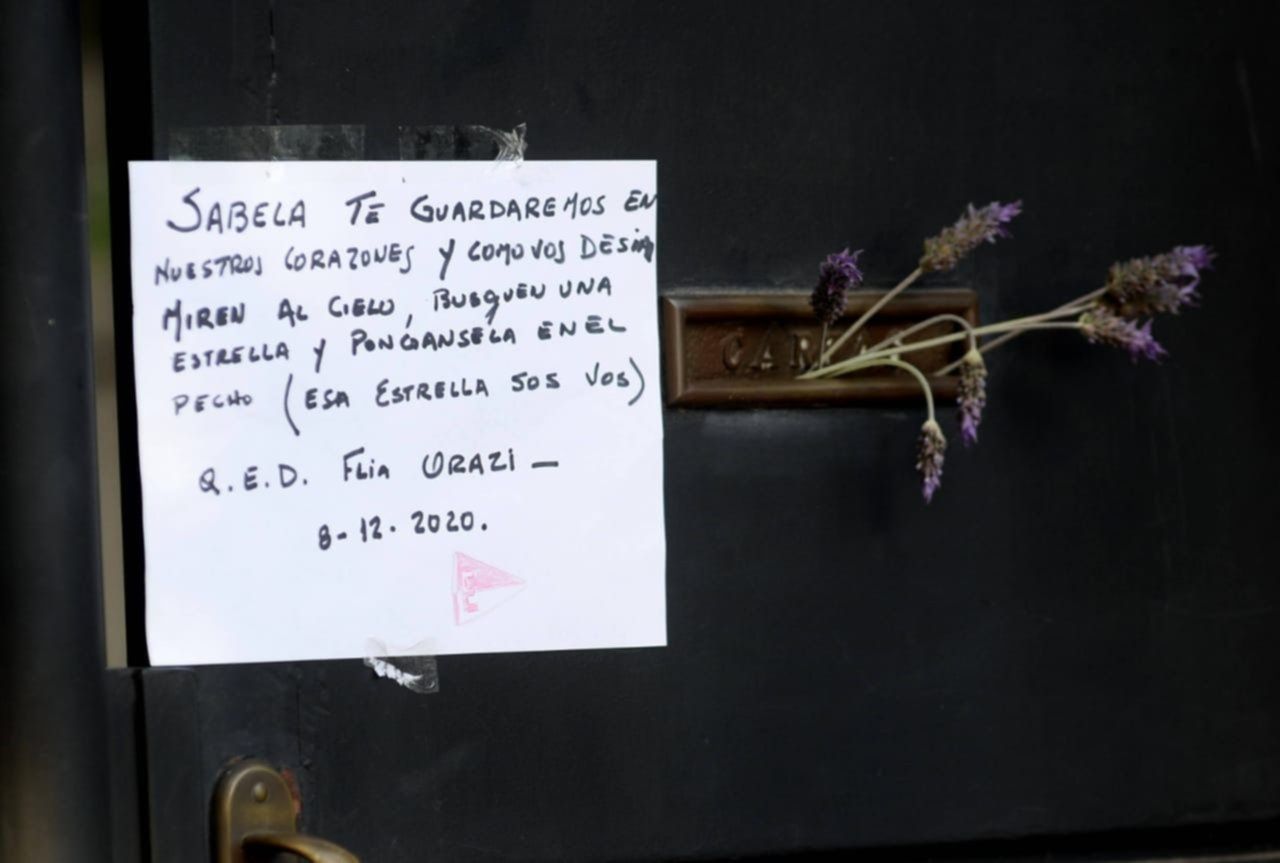 SABELA TE GUARDAREMOS EN
NUESTROS CORAZONES Y COMO VOS DESIAS
MIREN AL CIELO, BUSQUEN UNA
ESTRELLA Y PONGANSELA EN EL
PECHO (ESA ESTRELLA SOS VOS)
Q.E.D. FLIA ORAZI —
8-12-2020.
CARTAS